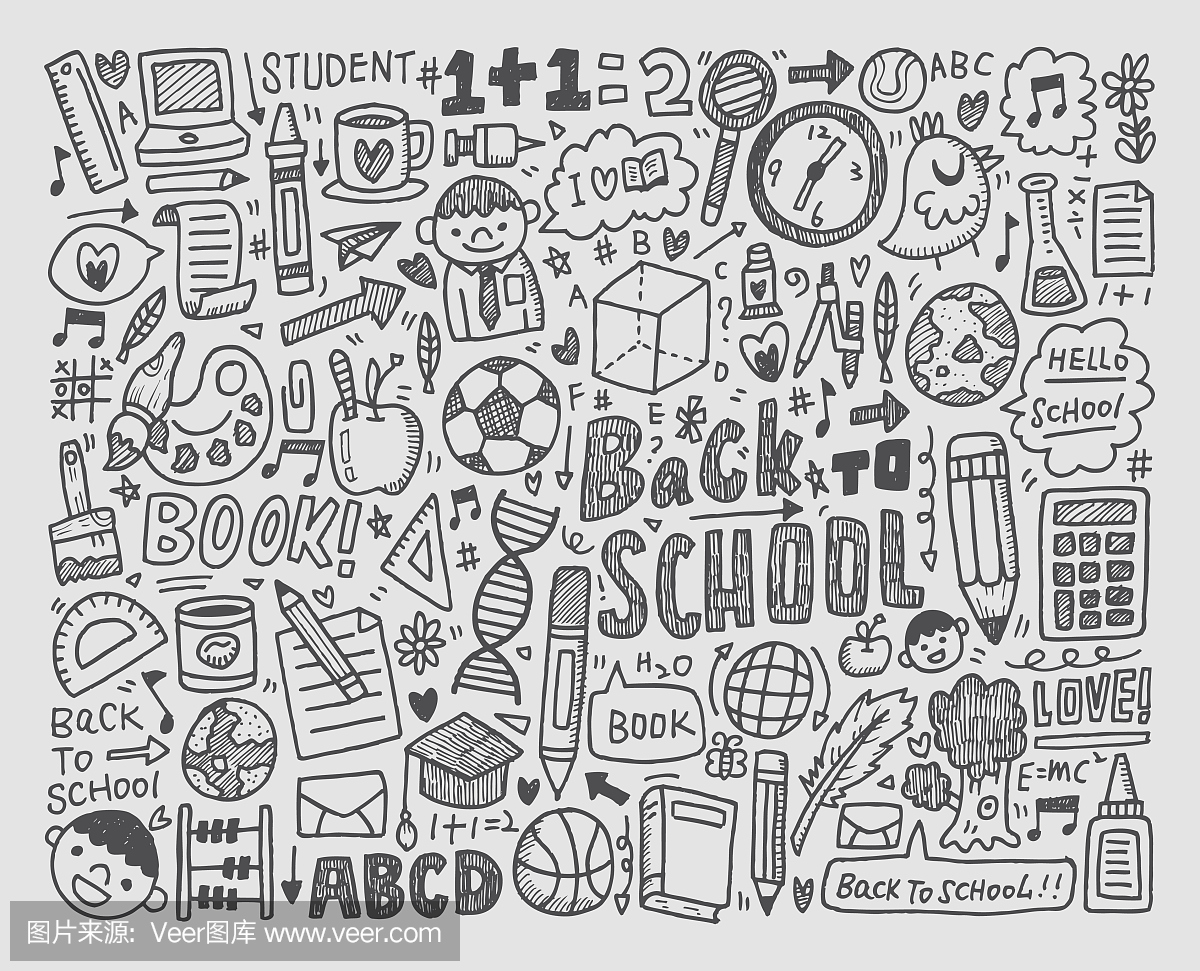 STUDENT #1+1=2
ABC
A
12
9 3
6
I
#
# B
+ -
× ÷
C
A
?
1+1
D
HELLO
SCHOOL
× ×
O O
×
F # E #
?
BaCK TO
SCHOOL
#
BOOK!
#
H2O
BOOK
LOVE!
BaCK
TO
SCHOOL
E=MC²
1+1=2
ABCD
BaCK To SCHOOL!!
图片来源: Veer图库 www.veer.com